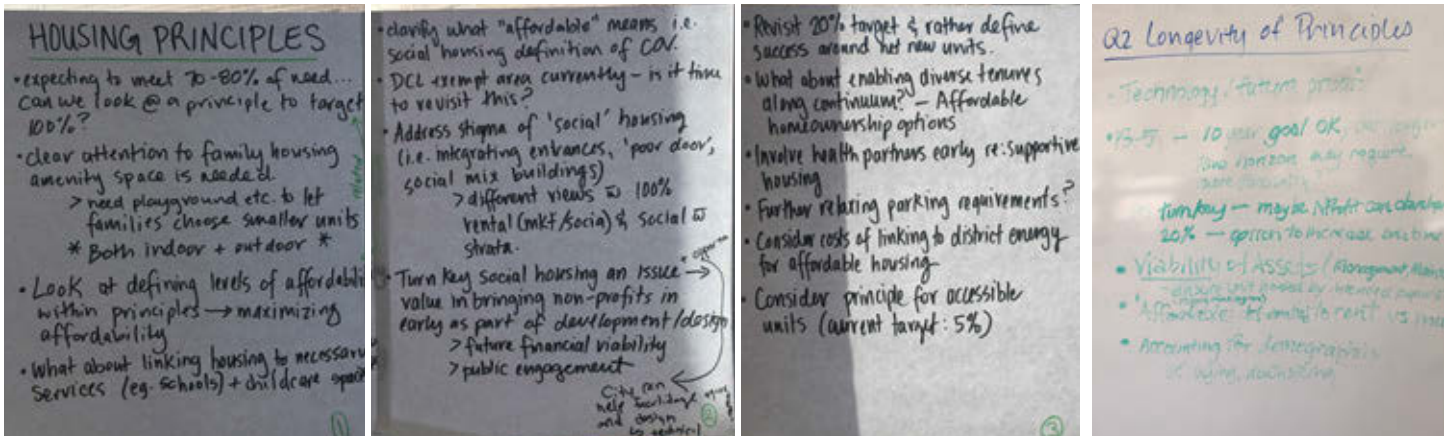 HOUSING PRINCIPLES
• expecting to meet 70-80% of need...
can we look @ a principle to target
100%?
• clear attention to family housing
amenity space is needed
> need playground etc. to let
families choose smaller units
* Both indoor + outdoor *
• Look at defining levels of affordabili
within principles → maximizing
affordability
• What about linking housing to necessary
services (eg. schools) + childcare
1
• clarify what "affordable" means i.e.
social housing definition of COV.
• DCL exempt area currently - is it time
to revisit this?
• Address stigma of 'social' housing
(i.e. integrating entrances, 'poor door',
social mix buildings)
> different views w 100%
rental (mkt/social) & social w
strata.
• Turn key social housing an issue →
value in bringing non-profits in
early as part of development/design
> future financial viability
> public engagement
City can
help facilitate
and design
2
• Revisit 20% target & rather define
success around net new units.
• What about enabling diverse tenures
along continuum? - Affordable
homeownership options
• Involve health partners early re: supportive
housing
• Further relaxing parking requirements?
• Consider costs of linking to district energy
for affordable housing
• Consider principle for accessible
units (current target: 5%)
3
Q2 Longevity of Principles
• Technology/future proof
- 10 year goal OK,
horizon may require
turnkey - maybe
20% - option to increase
• Viability of Assets / Management,
•
• Accounting for demographics